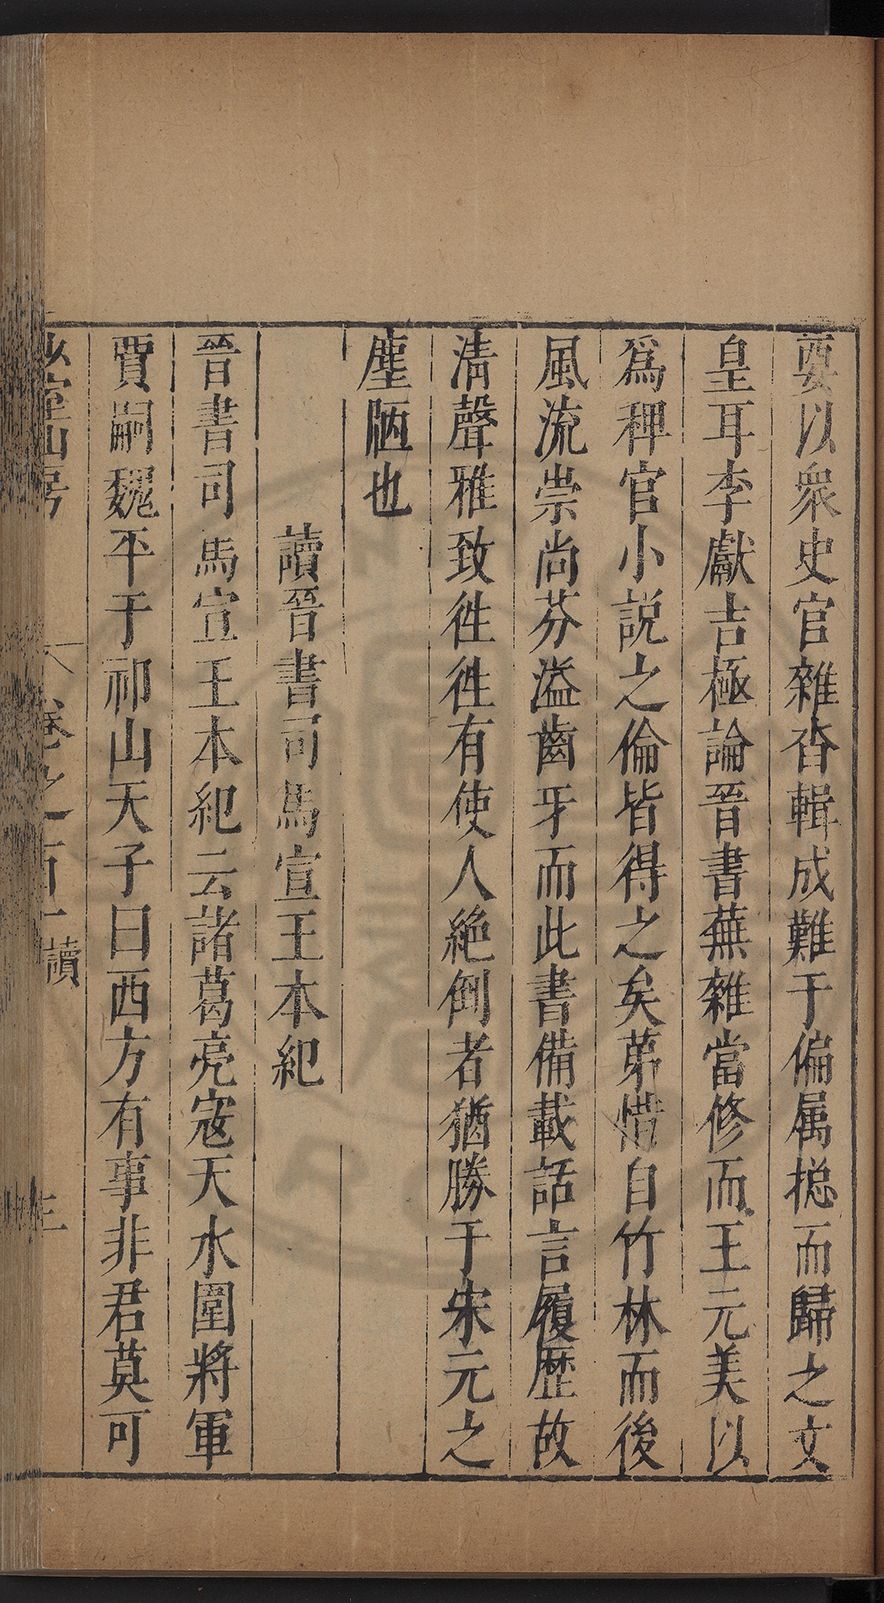 要以衆史官雜沓輯成難于偏属揔而歸之文
皇耳李獻吉極論晉書蕪雜當修而王元美以
爲稗官小說之倫皆得之矣苐惜自竹林而後
風流崇尚芬溢齒牙而此書備載話言履歴故
清聲雅致徃徃有使人絶倒者猶勝于宋元之
塵陋也
讀晉書司馬宣王本紀
晉書司馬宣王本紀云諸葛亮宼天水圍將軍
賈嗣魏平于祁山天子曰西方有事非君莫可
少室山房
卷之百一 讀